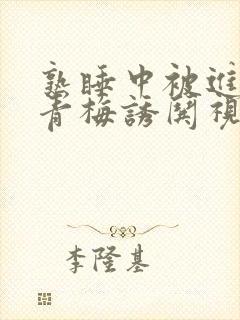 熟睡中被進
青梅誘関視
李隆基